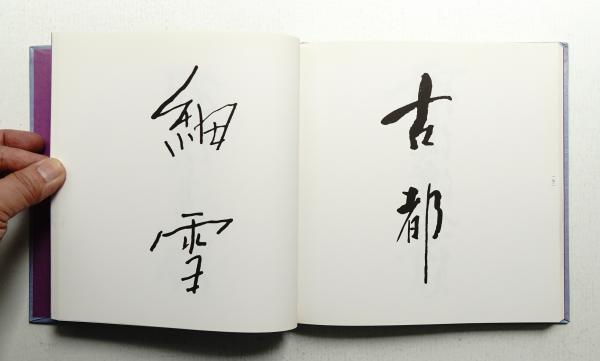 細雪
古都